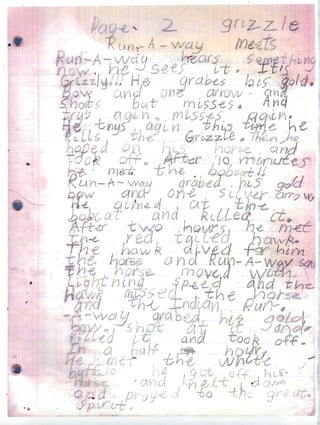 Page 2 grizzle
Run-A-way meets
Run-A-way hears something
now he sees it. It's
Grizzly!!! He grabes his gold.
bow and one arrow and
shots but misses. And
trys agin, misses agin.
He trys agin this time he
kills the Grizzle. Then he
hoped on his horse and
took off. After 10 minutes
he met the bobcat!!
Run-A-way grabed his gold
bow and one silver arrow
He aimed at the
bobcat and killed it.
After two hours he met
the red tailed hawk.
The hawk dived for him
the horse and Run-A-Way saw
The horse moved with
Lightning speed and the
Hawk missed the horse
and the Indian. Run-
-A-way grabed his gold
bow. shot at and
killed it and took off.
In a half hour.
He met the white
buffalo he got off his
horse and knelt down
and prayed to the great.
spirit.